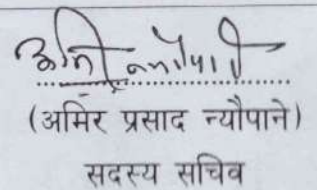 (अमिर प्रसाद न्यौपाने)
सदस्य सचिव